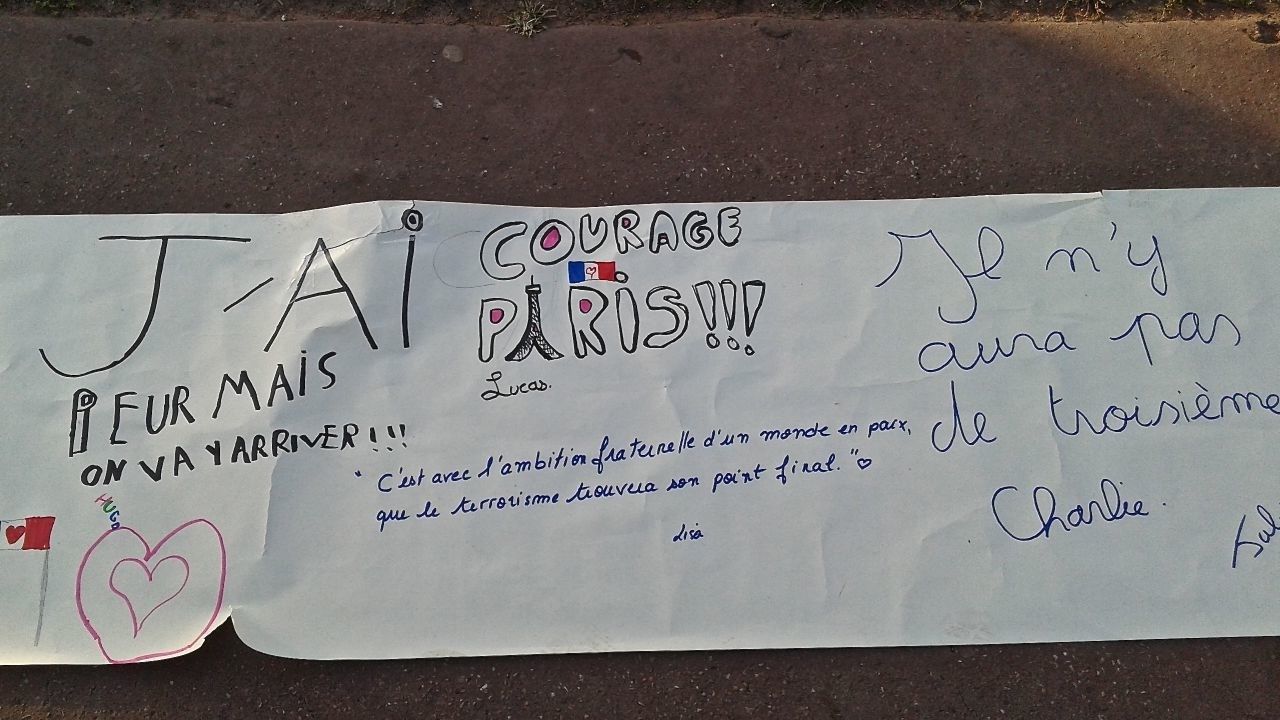 J'Ai
PEUR MAiS
ON VA Y ARRiVER!!!
HUGO
COURAGE
PARiS!!!
Lucas.
"C'est avec l'ambition fraternelle d'un monde en paix,
que le terrorisme trouvera son point final."
Lisa
Je n'y
aura pas
de troisième
Charlie.